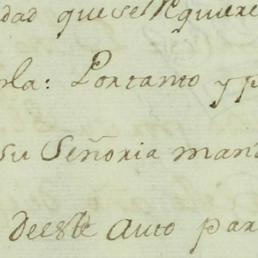 dad que se Rquiere
la: Portanto y p
su Señoria man
deeste Auto par